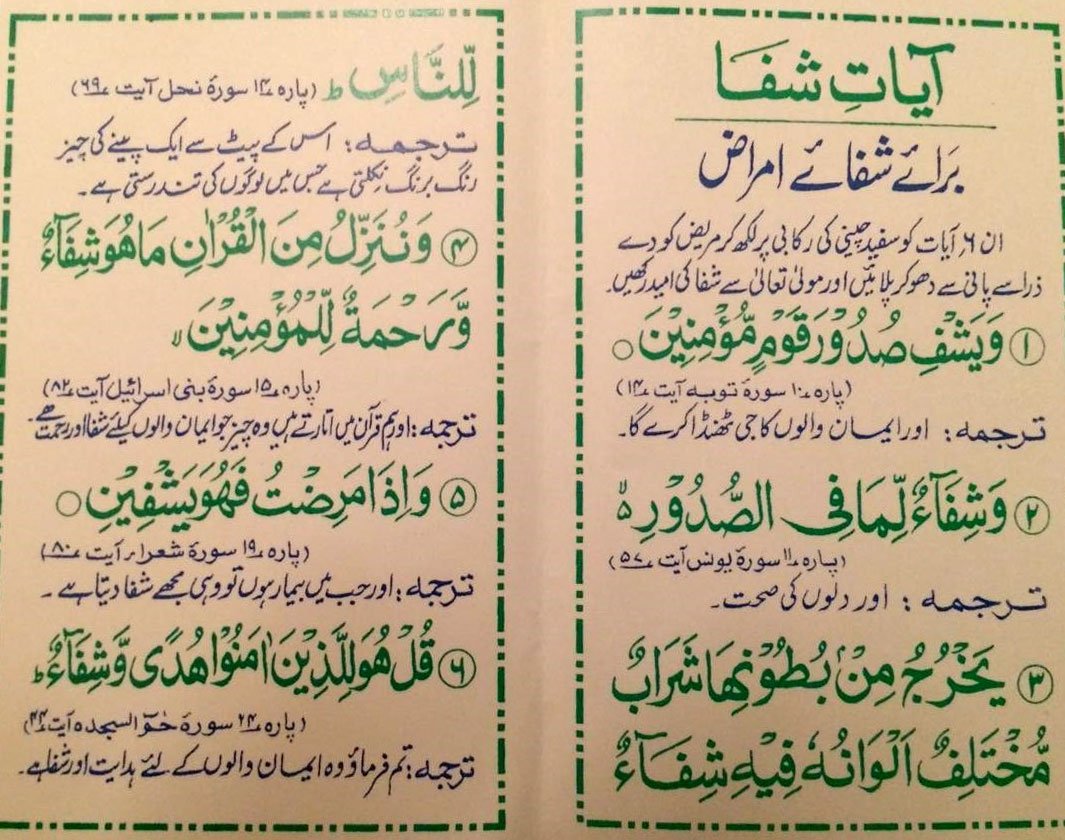 آیاتِ شفا
بَرائے شفائے امراض
ان ۶ آیات کو سفید چینی کی رکابی پر لکھ کر مریض کو دے
ذرا سے پانی سے دھو کر پلائیں اور مولیٰ تعالیٰ سے شفا کی امید رکھیں۔
۱ وَيَشْفِ صُدُوْرَ قَوْمٍ مُّؤْمِنِيْنَ ○
(پارہ ۱۰ سورۃ توبہ آیت ۱۴)
ترجمہ: اور ایمان والوں کا جی ٹھنڈا کرے گا۔
۲ وَشِفَآءٌ لِّمَا فِى الصُّدُوْرِ ۙ
(پارہ ۱۱ سورۃ یونس آیت ۵۷)
ترجمہ: اور دلوں کی صحت۔
۳ يَخْرُجُ مِنْۢ بُطُوْنِهَا شَرَابٌ
مُّخْتَلِفٌ اَلْوَانُهٗ فِيْهِ شِفَآءٌ
لِّلنَّاسِ ط (پارہ ۱۴ سورۃ نحل آیت ۶۹)
ترجمہ: اس کے پیٹ سے ایک پینے کی چیز
رنگ برنگ نکلتی ہے جس میں لوگوں کی تندرستی ہے۔
۴ وَنُنَزِّلُ مِنَ الْقُرْاٰنِ مَا هُوَ شِفَآءٌ
وَّرَحْمَةٌ لِّلْمُؤْمِنِيْنَ ۙ
(پارہ ۱۵ سورۃ بنی اسرائیل آیت ۸۲)
ترجمہ: اور ہم قرآن میں اتارتے ہیں وہ چیز جو ایمان والوں کیلئے شفا اور رحمت ہے۔
۵ وَاِذَا مَرِضْتُ فَهُوَ يَشْفِيْنِ ○
(پارہ ۱۹ سورۃ شعراء آیت ۸۰)
ترجمہ: اور جب میں بیمار ہوں تو وہی مجھے شفا دیتا ہے۔
۶ قُلْ هُوَ لِلَّذِيْنَ اٰمَنُوْا هُدًى وَّشِفَآءٌ ط
(پارہ ۲۴ سورۃ حٰمٓ السجدہ آیت ۴۴)
ترجمہ: تم فرماؤ وہ ایمان والوں کے لئے ہدایت اور شفا ہے۔